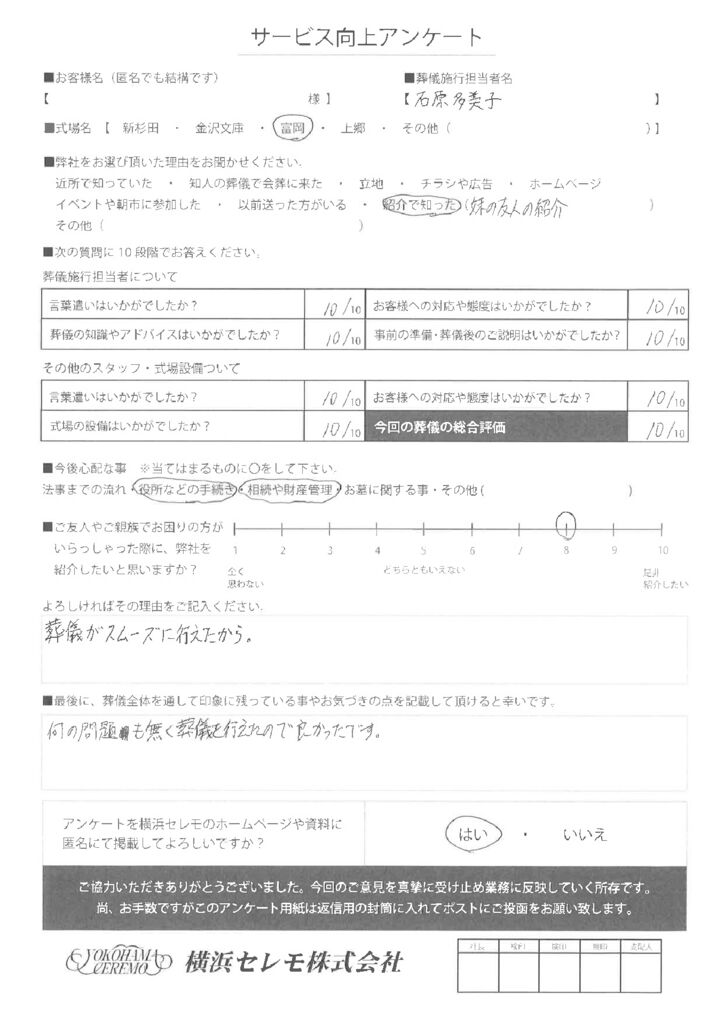 サービス向上アンケート
■お客様名（匿名でも結構です） ■葬儀施行担当者名
【 様】 【石原多美子 】
■式場名【 新杉田 ・ 金沢文庫 ・ 富岡 ・ 上郷 ・ その他（ ）】
■弊社をお選び頂いた理由をお聞かせください。
近所で知っていた ・ 知人の葬儀で会葬に来た ・ 立地 ・ チラシや広告 ・ ホームページ
イベントや朝市に参加した ・ 以前送った方がいる ・ 紹介で知った（妹の友人の紹介 ）
その他（ ）
■次の質問に10段階でお答えください。
葬儀施行担当者について
言葉遣いはいかがでしたか？ 10/10 お客様への対応や態度はいかがでしたか？ 10/10
葬儀の知識やアドバイスはいかがでしたか？ 10/10 事前の準備・葬儀後のご説明はいかがでしたか？ 10/10
その他のスタッフ・式場設備ついて
言葉遣いはいかがでしたか？ 10/10 お客様への対応や態度はいかがでしたか？ 10/10
式場の設備はいかがでしたか？ 10/10 今回の葬儀の総合評価 10/10
■今後心配な事 ※当てはまるものに〇をして下さい。
法事までの流れ・役所などの手続き・相続や財産管理・お墓に関する事・その他（ ）
■ご友人やご親族でお困りの方が
いらっしゃった際に、弊社を
紹介したいと思いますか？
1 2 3 4 5 6 7 8 9 10
全く どちらともいえない 是非
思わない 紹介したい
よろしければその理由をご記入ください。
葬儀がスムーズに行えたから。
■最後に、葬儀全体を通して印象に残っている事やお気づきの点を記載して頂けると幸いです。
何の問題も無く葬儀を行えたので良かったです。
アンケートを横浜セレモのホームページや資料に
匿名にて掲載してよろしいですか？
はい ・ いいえ
ご協力いただきありがとうございました。今回のご意見を真摯に受け止め業務に反映していく所存です。
尚、お手数ですがこのアンケート用紙は返信用の封筒に入れてポストにご投函をお願い致します。
YOKOHAMA
CEREMO
横浜セレモ株式会社
社長 検印 検印 支配人